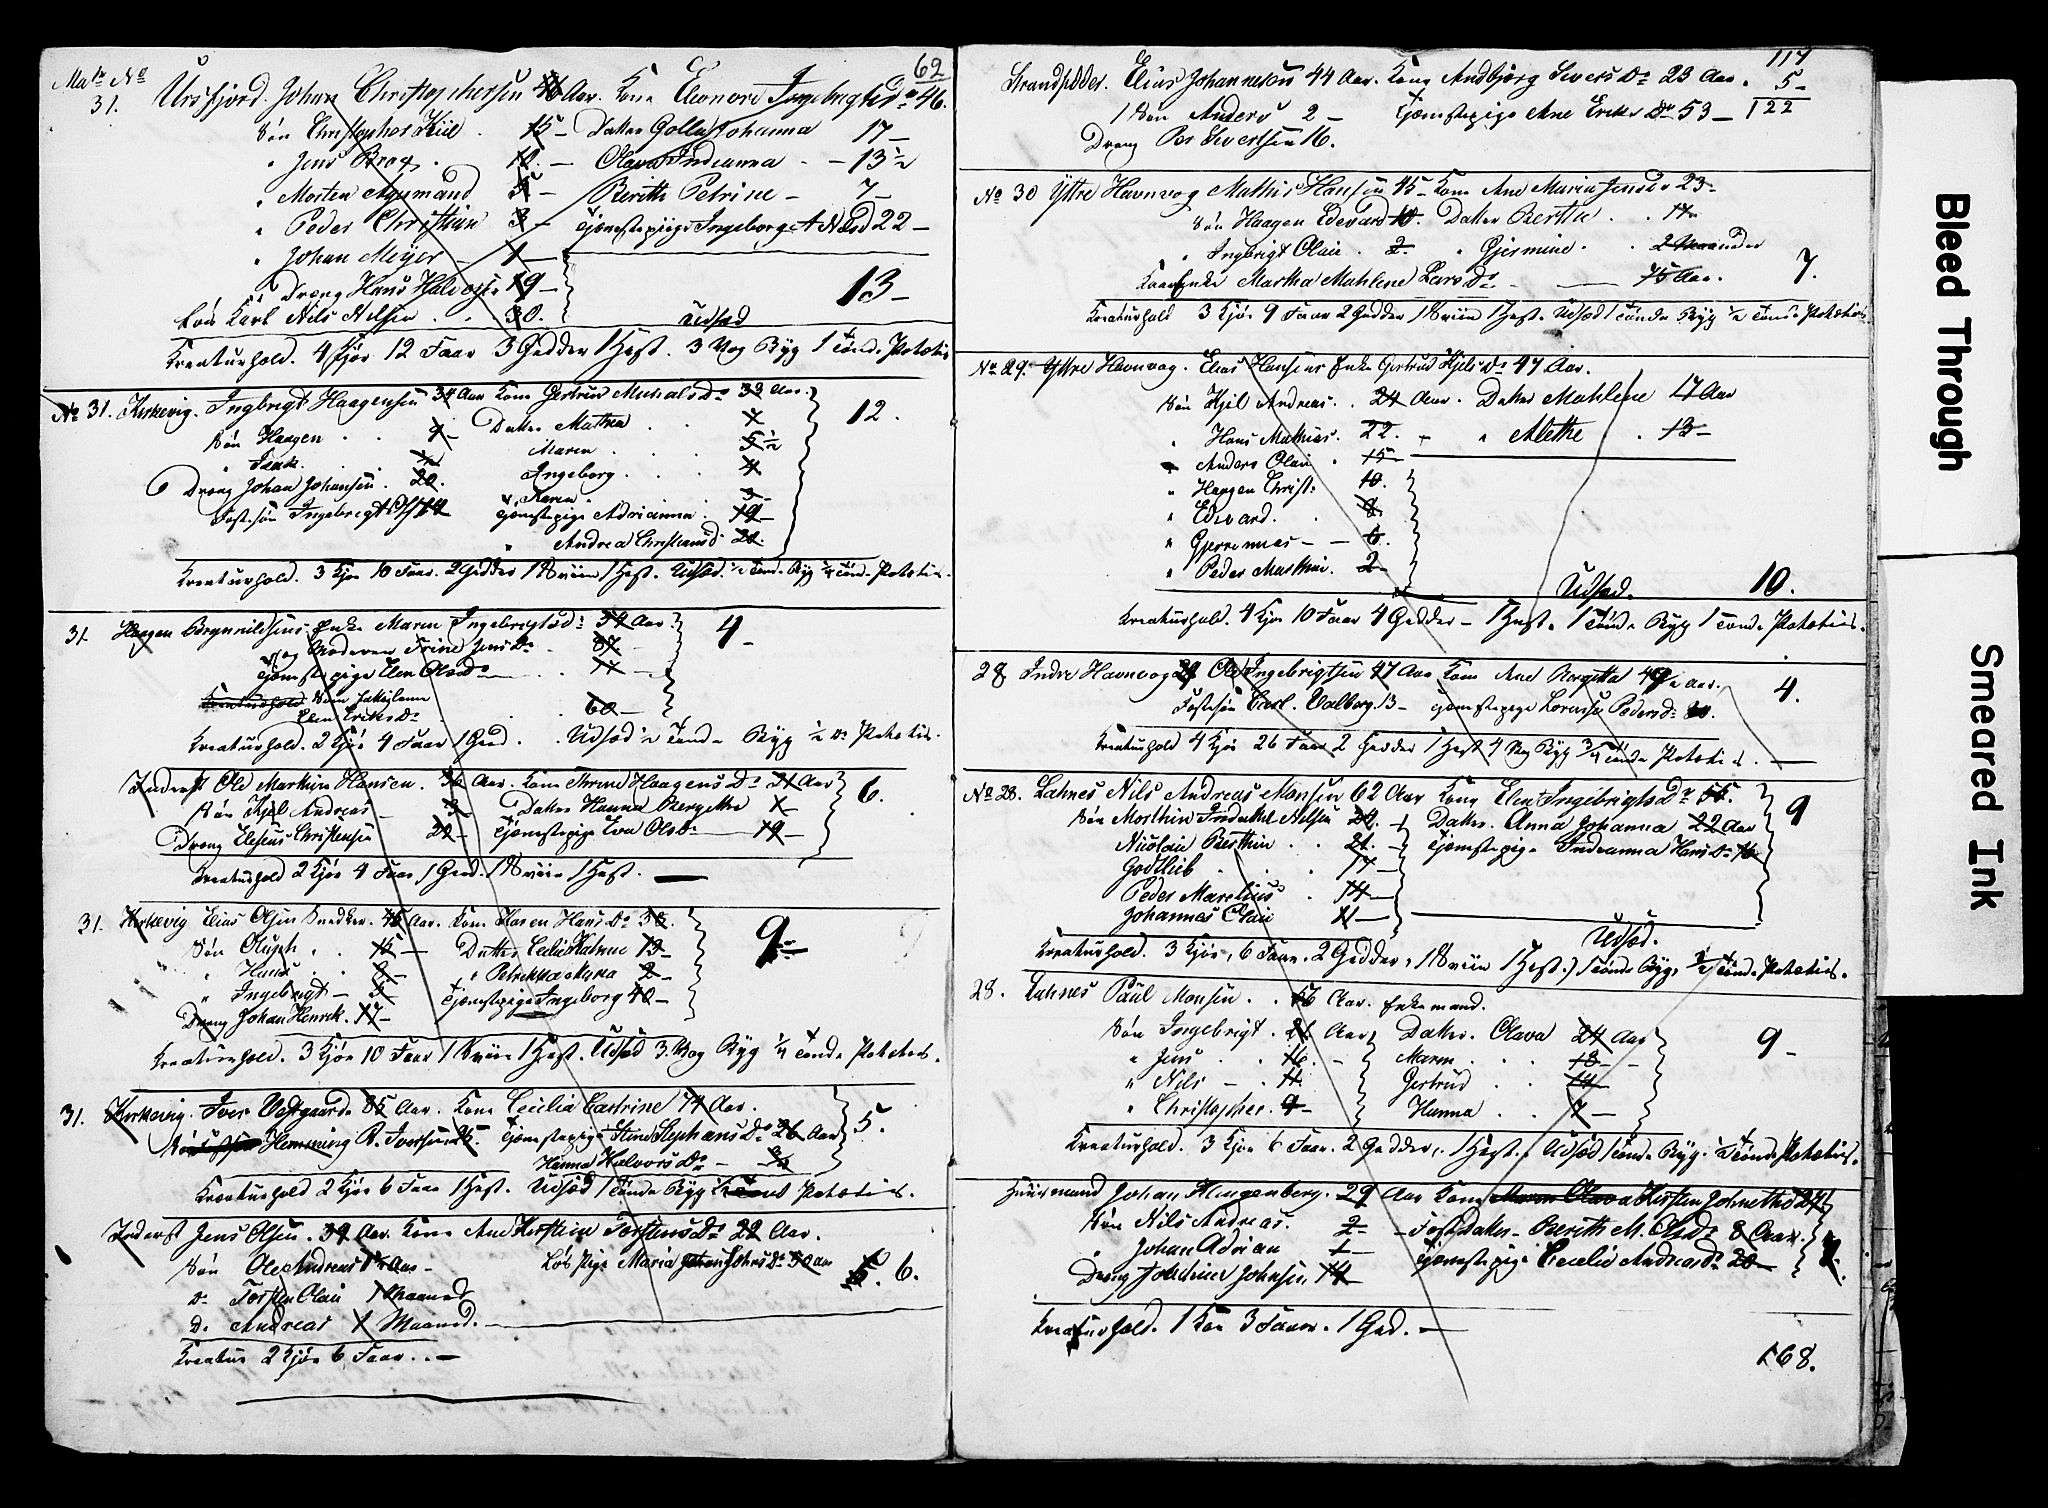 62
Matr No
31. Ursfjord. Johan Christophersen 46 Aar. Kone Eleonore Ingebrigtsdr 46.
Søn Christopher Kiil . 15 — Datter Golla Johanna 17 —
" Jens Brog . 10. — Olava Indianna . — 13 ½
" Morten Agymand 5 — Berith Petrine — 7 —
" Peder Christian 3 — Tjenestepige Ingeborg A Nilsd 22 —
" Johan Meyer — 1 —
" Dreng Hans Halvors 19 — 13 —
Løs Karl Nils Nilsen . . 30. Udsæd
Kreaturhold. 4 Kjør 12 Faar 3 Gedder 1 Hest. 3 Vog Byg 1 Tønde Potetis
No 31. Kirkevig. Ingbrigt Haagensen 34 Aar Kone Gertrud Musalsdr 33 Aar. 12.
Søn Haagen . . 9 — Datter Mathea . .
" Isak . . Maren . . 5 ½
Dreng Johan Johansen . 20. Ingeborg . . 4
Fostersøn Ingebrigt 14 Karen . . 3 —
Tjenestepige Adrianna . 19 —
" Andrea Christiansd 20.
Kreaturhold. 3 Kjør 10 Faar. 2 Gedder 1 Sviin 1 Hest. Udsæd. ½ Tønde Byg ½ Tønde Potetis.
31. Haagen Brynnildsens Enke Maren Ingebrigtsd: 34 Aar 4 —
og Moderen Trine Jensdr . 87. —
Tjenestepige Elen Olsdr
Kreaturhold
Elen Eriksdr . . 60 —
Kreaturhold. 2 Kjør 4 Faar 1 Ged. . Udsæd ½ Tønde Byg ½ do Potetis.
Inderst Ole Martin Hansen . 36 Aar. Kone Thrine Haagensdr 31 Aar 6.
Søn Kjel Andreas — 3 Datter Hanna Bergitte
Dreng Elesius Christensen 22 — Tjenestepige Eva Olsdr — 19 —
Kreaturhold 2 Kjør 4 Faar 1 Ged. 1 Sviin 1 Hest. —
31. Kirkevig Elias Olsen Snedker. 45 Aar. Kone Karen Hansdr 38. 9 —
Søn Oluph . . 15 — Datter Cecilia Katrine 12 —
" Hans . . 8 — " Petrikka Maria 2 —
" Ingebrigt — 5 Tjenestepige Ingeborg 40 —
Dreng Johan Henrik . 17 —
Kreaturhold. 3 Kjør 10 Faar 1 Sviin 1 Hest. Udsæd 3. Vog Byg ¼ Tønde Potetis.
31. Kirkevig. Iver Vestgaard 85 Aar. Kone Cecilia Cathrine 74 Aar. 5.
Henning R. Iversen 25. Tjenestepige Stine Stephansdr 26 Aar
Hanna Halvorsdr —
Kreaturhold 2 Kjør 6 Faar 1 Hest. Udsæd 1 Tønde Byg Tønde Potetis.
Inderst Jens Olsen . 34 Aar. Kone Ane Kirstina Torstensdr 22 Aar.
Søn Ole Andreas Aar — Løs Pige Maria Johnsdr 30 Aar 6.
do Torsten Olai 1 Maaned
Do Andreas 1 Maaned. —
Kreatur 2 Kjør 6 Faar . . —
117
5 —
122
Strandsidder. Elias Johannesen 44 Aar. Kone Andbjørg Siversdr 23 Aar .
1 Søn Anders 2 — Tjenestepige Ane Eriksdr 53 —
Dreng Per Sivertsen 16.
No 30 Yttre Havnvog Mathis Hansen 45 — Kone Ane Maria Jensdr 23 —
Søn Haagen Edevard 10. Datter Bertha . .
" Ingbrigt Olai . 2. " Gjermine . . 2 Maaneder 7.
Kaarenke Martha Mahlene Larsdr — 75 Aar.
Kreaturhold 3 Kjør 9 Faar 2 Gedder 1 Sviin 1 Hest. Udsæd 1 Tønde Byg ½ Tønde Potetis.
No 29. Yttre Havnvog. Elias Hansens Enke Gertrud Kjelsdr 47 Aar.
Søn Kjel Andreas. . 24 Aar. Datter Mahlene 17 Aar
" Hans Mathias. 22. " Alethe . 13 —
" Anders Olai . 15 —
" Haagen Christ: 10.
" Edvard. . 8.
" Gjerremias — — 6.
" Peder Marthin. 2 — Udsæd. 10.
Kreaturhold. 4 Kjør 10 Faar 4 Gedder — 1 Hest. 1 Tønde Byg 1 Tønde Potetis.
28 Indre Havnvog Ole Ingebrigtsen 47 Aar Kone Ane Bergitta 49 ½ Aar. 4.
Fostersøn Carl. Valberg. 13 — Tjenestepige Lovisa Pedersdr 20.
Kreaturhold 4 Kjør 26 Faar 2 Gedder 1 Hest 4 Vog Byg ¾ Tønde Potetis. —
No 28. Lahnes Nils Andreas Monsen 62 Aar Kone Elen Ingebrigtsdr 55. 9
Søn Morthin Nilsen 29. — Datter. Anna Johanna 22 Aar
Nicolai Berthin . . 21. — Tjenestepige Indianna Hansdr 16
Godtlieb . . 17 —
Peder Marelius . 14 —
Johannes Olai 11 — Udsæd.
Kreaturhold. 3 Kjør, 6 Faar. 2 Gedder, 1 Sviin 1 Hest. 1 Tønde Byg. ½ Tønde Potetis.
28. Lahnes Paul Monsen . . 56 Aar. Enkemand.
Søn Ingebrigt . 21 Aar Datter. Olava 24 Aar 9 —
" Jens . . 16. — Maren . . 18 —
" Nils — . 11. Gertrud . . 14 —
" Christopher. 9 — Hanna . . 7 —
Kreaturhold. 3 Kjør 6 Faar. 2 Gedder, 1 Hest. Udsæd 1 Tønde Byg. ½ Tønde Potetis.
Huusmand Johan Klingenberg. 29 Aar Kone Maren Olava Kirsten Johnethe 27
Søn Nils Andreas. 2 — Fost Datter — Berith M. Olsdr 8 Aar.
" Johan Adrian 1 — Tjenestepige Cecelie Andreasdr 20 —
Dreng Johnsen 14
Kreaturhold. 1 Koe 3 Faar. 1 Ged. —
168.
Bleed Through
Smeared Ink